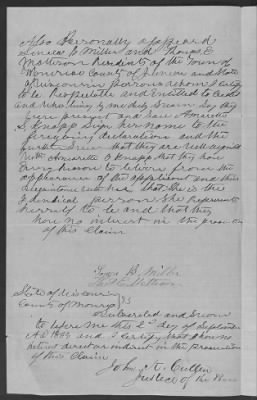 Also Personally appeared
Miller and Thomas E
Mattison Residents of the Town of
County of and State
of Wisconsin persons whom I certify
to be Respectable and entitled to credit
and who being by me duly Sworn Say they
were present and saw Amarette
S Knapp Sign her name to the
foregoing declaration and the
further Swear that they are well acquainted
with Amarette S Knapp that they have
Every Reason to believe from the
appearance of the applicant and their
acquaintance with her that She is the
Identical person She Represents
herself to be and that they
have no interest in the prosecution
of this Claim
B. Miller
State of Wisconsin
County of Monroe } SS
Subscribed and Sworn
to before me this 2 day of September
A.D. and I certify that I have no
interest direct or indirect in the prosecution
of this Claim
John A.
Justice of the Peace